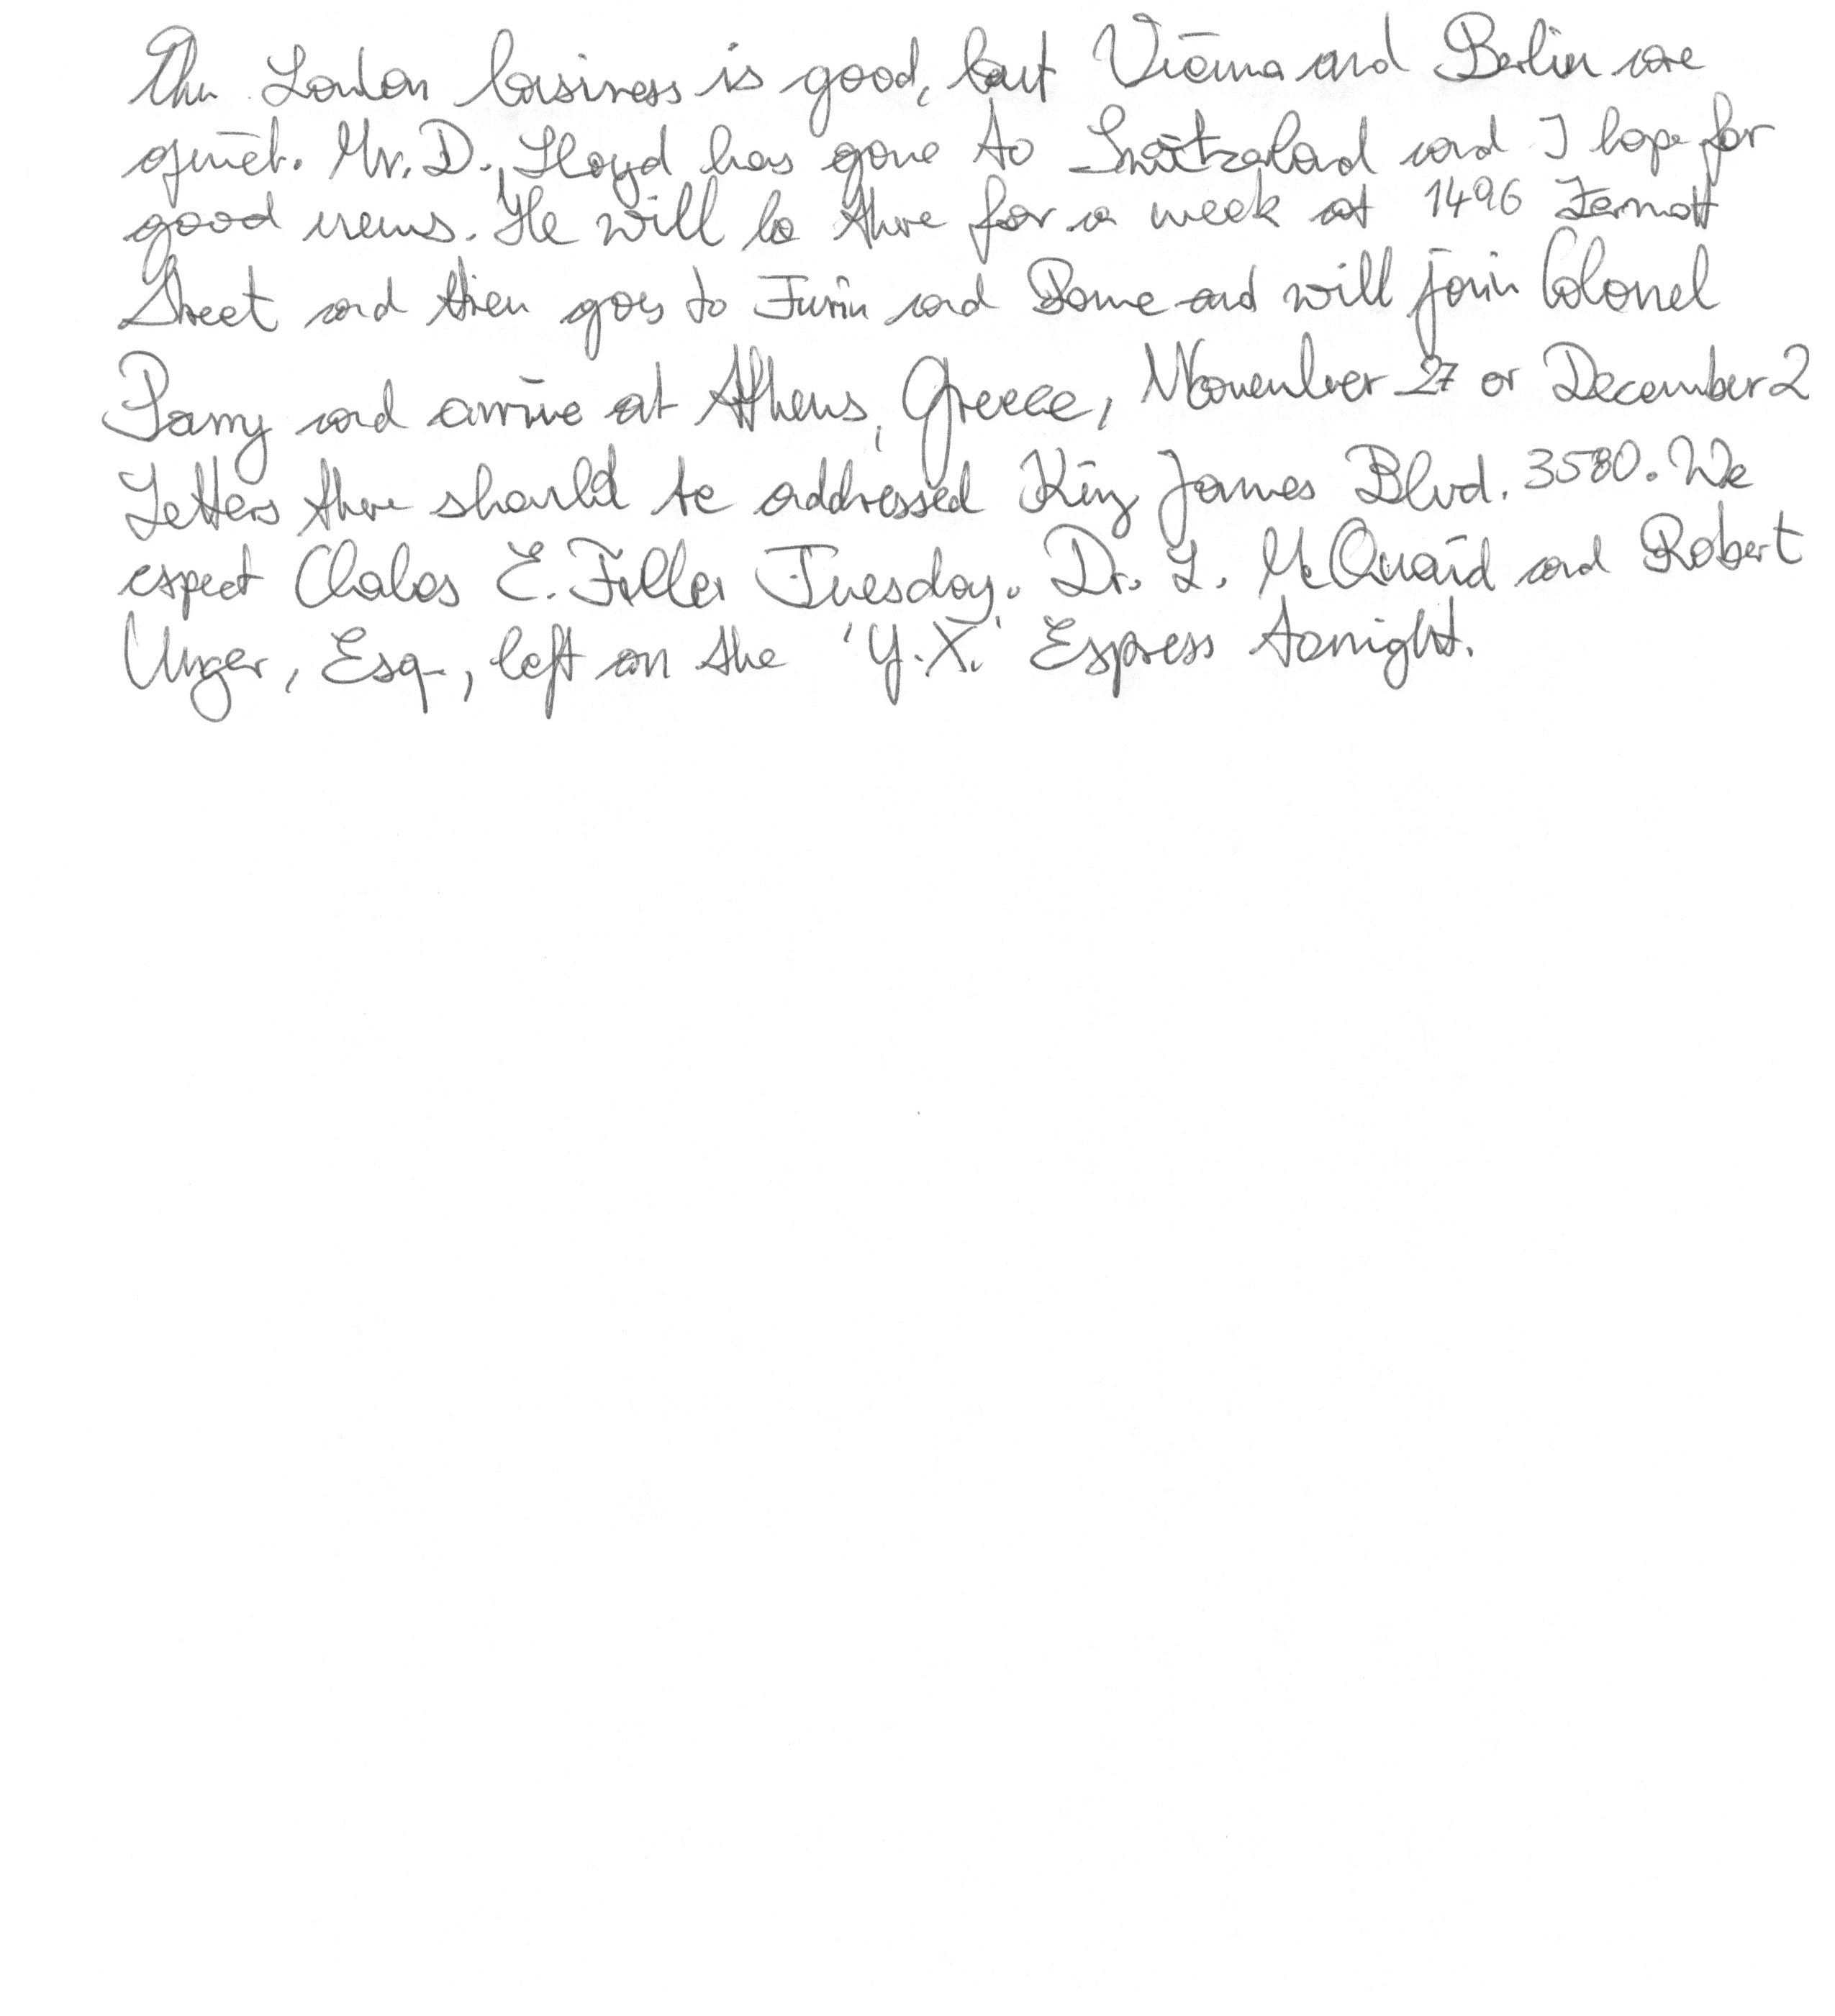 The London business is good, but Vienna and Berlin are
quiet. Mr. D. Lloyd has gone to Switzerland and I hope for
good news. He will be there for a week at 1496 Zermott
Street and then goes to Turin and Rome and will join Colonel
Parry and arrive at Athens, Greece, November 27 or December 2
Letters there should be addressed King James Blvd. 3580. We
expect Chales E. Fuller Tuesday. Dr. L. McQuaid and Robert
Unger, Esq., left on the 'Y.X.' Express tonight.